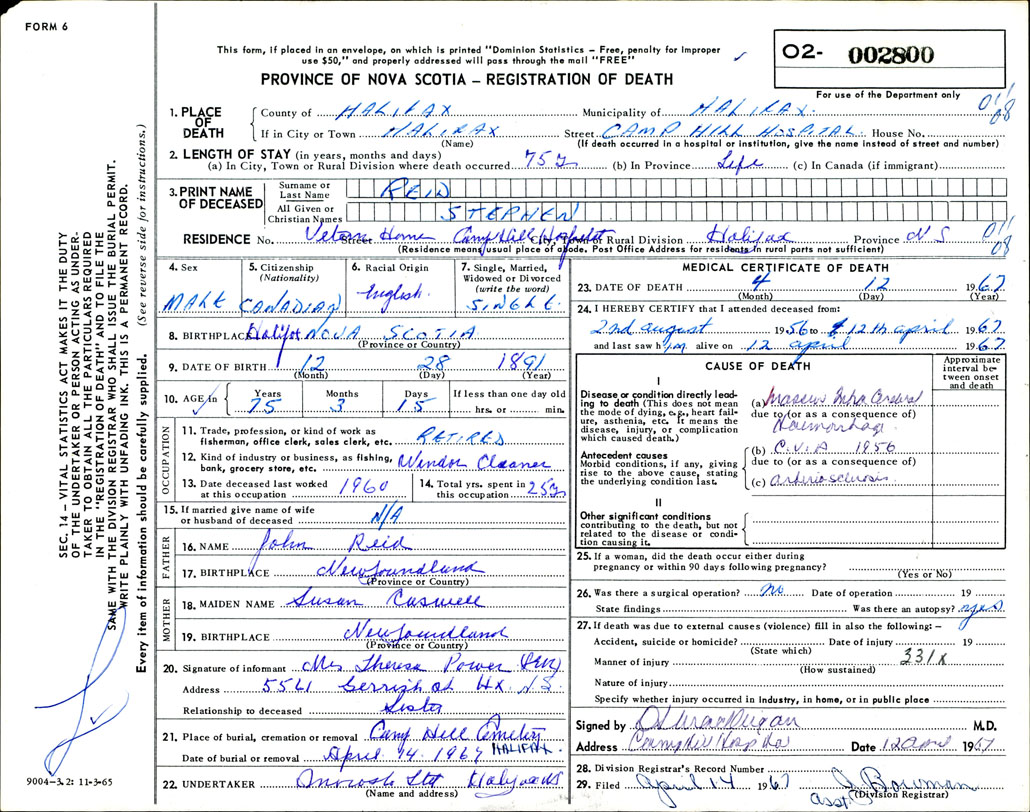 FORM 6
This form, if placed in an envelope, on which is printed "Dominion Statistics – Free, penalty for improper
use $50," and properly addressed will pass through the mail "FREE"
PROVINCE OF NOVA SCOTIA – REGISTRATION OF DEATH
O2- 002800
For use of the Department only
1. PLACE OF DEATH
County of HALIFAX Municipality of HALIFAX. 011/08
If in City or Town HALIFAX Street CAMP HILL HOSPITAL House No.
(Name) (If death occurred in a hospital or institution, give the name instead of street and number)
2. LENGTH OF STAY (in years, months and days)
(a) In City, Town or Rural Division where death occurred 75y (b) In Province Life (c) In Canada (if immigrant)
3. PRINT NAME OF DECEASED
Surname or Last Name REID
All Given or Christian Names STEPHEN
RESIDENCE No. Street City, Town or Rural Division Halifax Province NS 011/08
Home Camp Hill
(Residence means usual place of abode. Post Office Address for residents in rural parts not sufficient)
4. Sex MALE
5. Citizenship (Nationality) CANADIAN
6. Racial Origin English.
7. Single, Married, Widowed or Divorced (write the word) SINGLE.
8. BIRTHPLACE Halifax NOVA SCOTIA
(Province or Country)
9. DATE OF BIRTH 12 28 1891
(Month) (Day) (Year)
10. AGE in Years 75 Months 3 Days 15 If less than one day old hrs. or min.
OCCUPATION
11. Trade, profession, or kind of work as
fisherman, office clerk, sales clerk, etc. RETIRED
12. Kind of industry or business, as fishing,
bank, grocery store, etc. Window Cleaner
13. Date deceased last worked
at this occupation 1960
14. Total yrs. spent in
this occupation 25y
15. If married give name of wife
or husband of deceased N/A
FATHER
16. NAME John Reid
17. BIRTHPLACE Newfoundland
(Province or Country)
MOTHER
18. MAIDEN NAME Susan Caswell
19. BIRTHPLACE Newfoundland
(Province or Country)
20. Signature of informant Mrs Theresa Power
Address 5541 Gerrish st Hx. N.S.
Relationship to deceased Sister
21. Place of burial, cremation or removal Camp Hill Cemetery
HALIFAX
Date of burial or removal April 14. 1967
22. UNDERTAKER Halifax NS
(Name and address)
MEDICAL CERTIFICATE OF DEATH
23. DATE OF DEATH 4 12 1967
(Month) (Day) (Year)
24. I HEREBY CERTIFY that I attended deceased from:
2nd august 1956 to 12th april 1967
and last saw him alive on 12 april 1967
CAUSE OF DEATH
Approximate interval between onset and death
I
Disease or condition directly leading to death (This does not mean the mode of dying, e.g., heart failure, asthenia, etc. It means the disease, injury, or complication which caused death.)
(a) Massive Intra Cerebral
due to (or as a consequence of)
Haemorrhage.
Antecedent causes
Morbid conditions, if any, giving rise to the above cause, stating the underlying condition last.
(b) C.V.A 1956
due to (or as a consequence of)
(c) arteriosclerosis.
II
Other significant conditions
contributing to the death, but not related to the disease or condition causing it.
25. If a woman, did the death occur either during
pregnancy or within 90 days following pregnancy?
(Yes or No)
26. Was there a surgical operation? no Date of operation 19
State findings Was there an autopsy? yes
27. If death was due to external causes (violence) fill in also the following: –
Accident, suicide or homicide? Date of injury 19
(State which)
Manner of injury 331X
(How sustained)
Nature of injury
Specify whether injury occurred in industry, in home, or in public place
Signed by M.D.
Address Camphill Hospital Date 12 april 1967
28. Division Registrar's Record Number
29. Filed april 14 1967 J. Bowman
asst (Division Registrar)
SEC. 14 – VITAL STATISTICS ACT MAKES IT THE DUTY
OF THE UNDERTAKER OR PERSON ACTING AS UNDER-
TAKER TO OBTAIN ALL THE PARTICULARS REQUIRED
IN THE "REGISTRATION OF DEATH" AND TO FILE THE
SAME WITH THE DIVISION REGISTRAR WHO SHALL ISSUE THE BURIAL PERMIT.
WRITE PLAINLY WITH UNFADING INK. THIS IS A PERMANENT RECORD.
Every item of information should be carefully supplied. (See reverse side for instructions.)
9004-3.2: 11-3-65